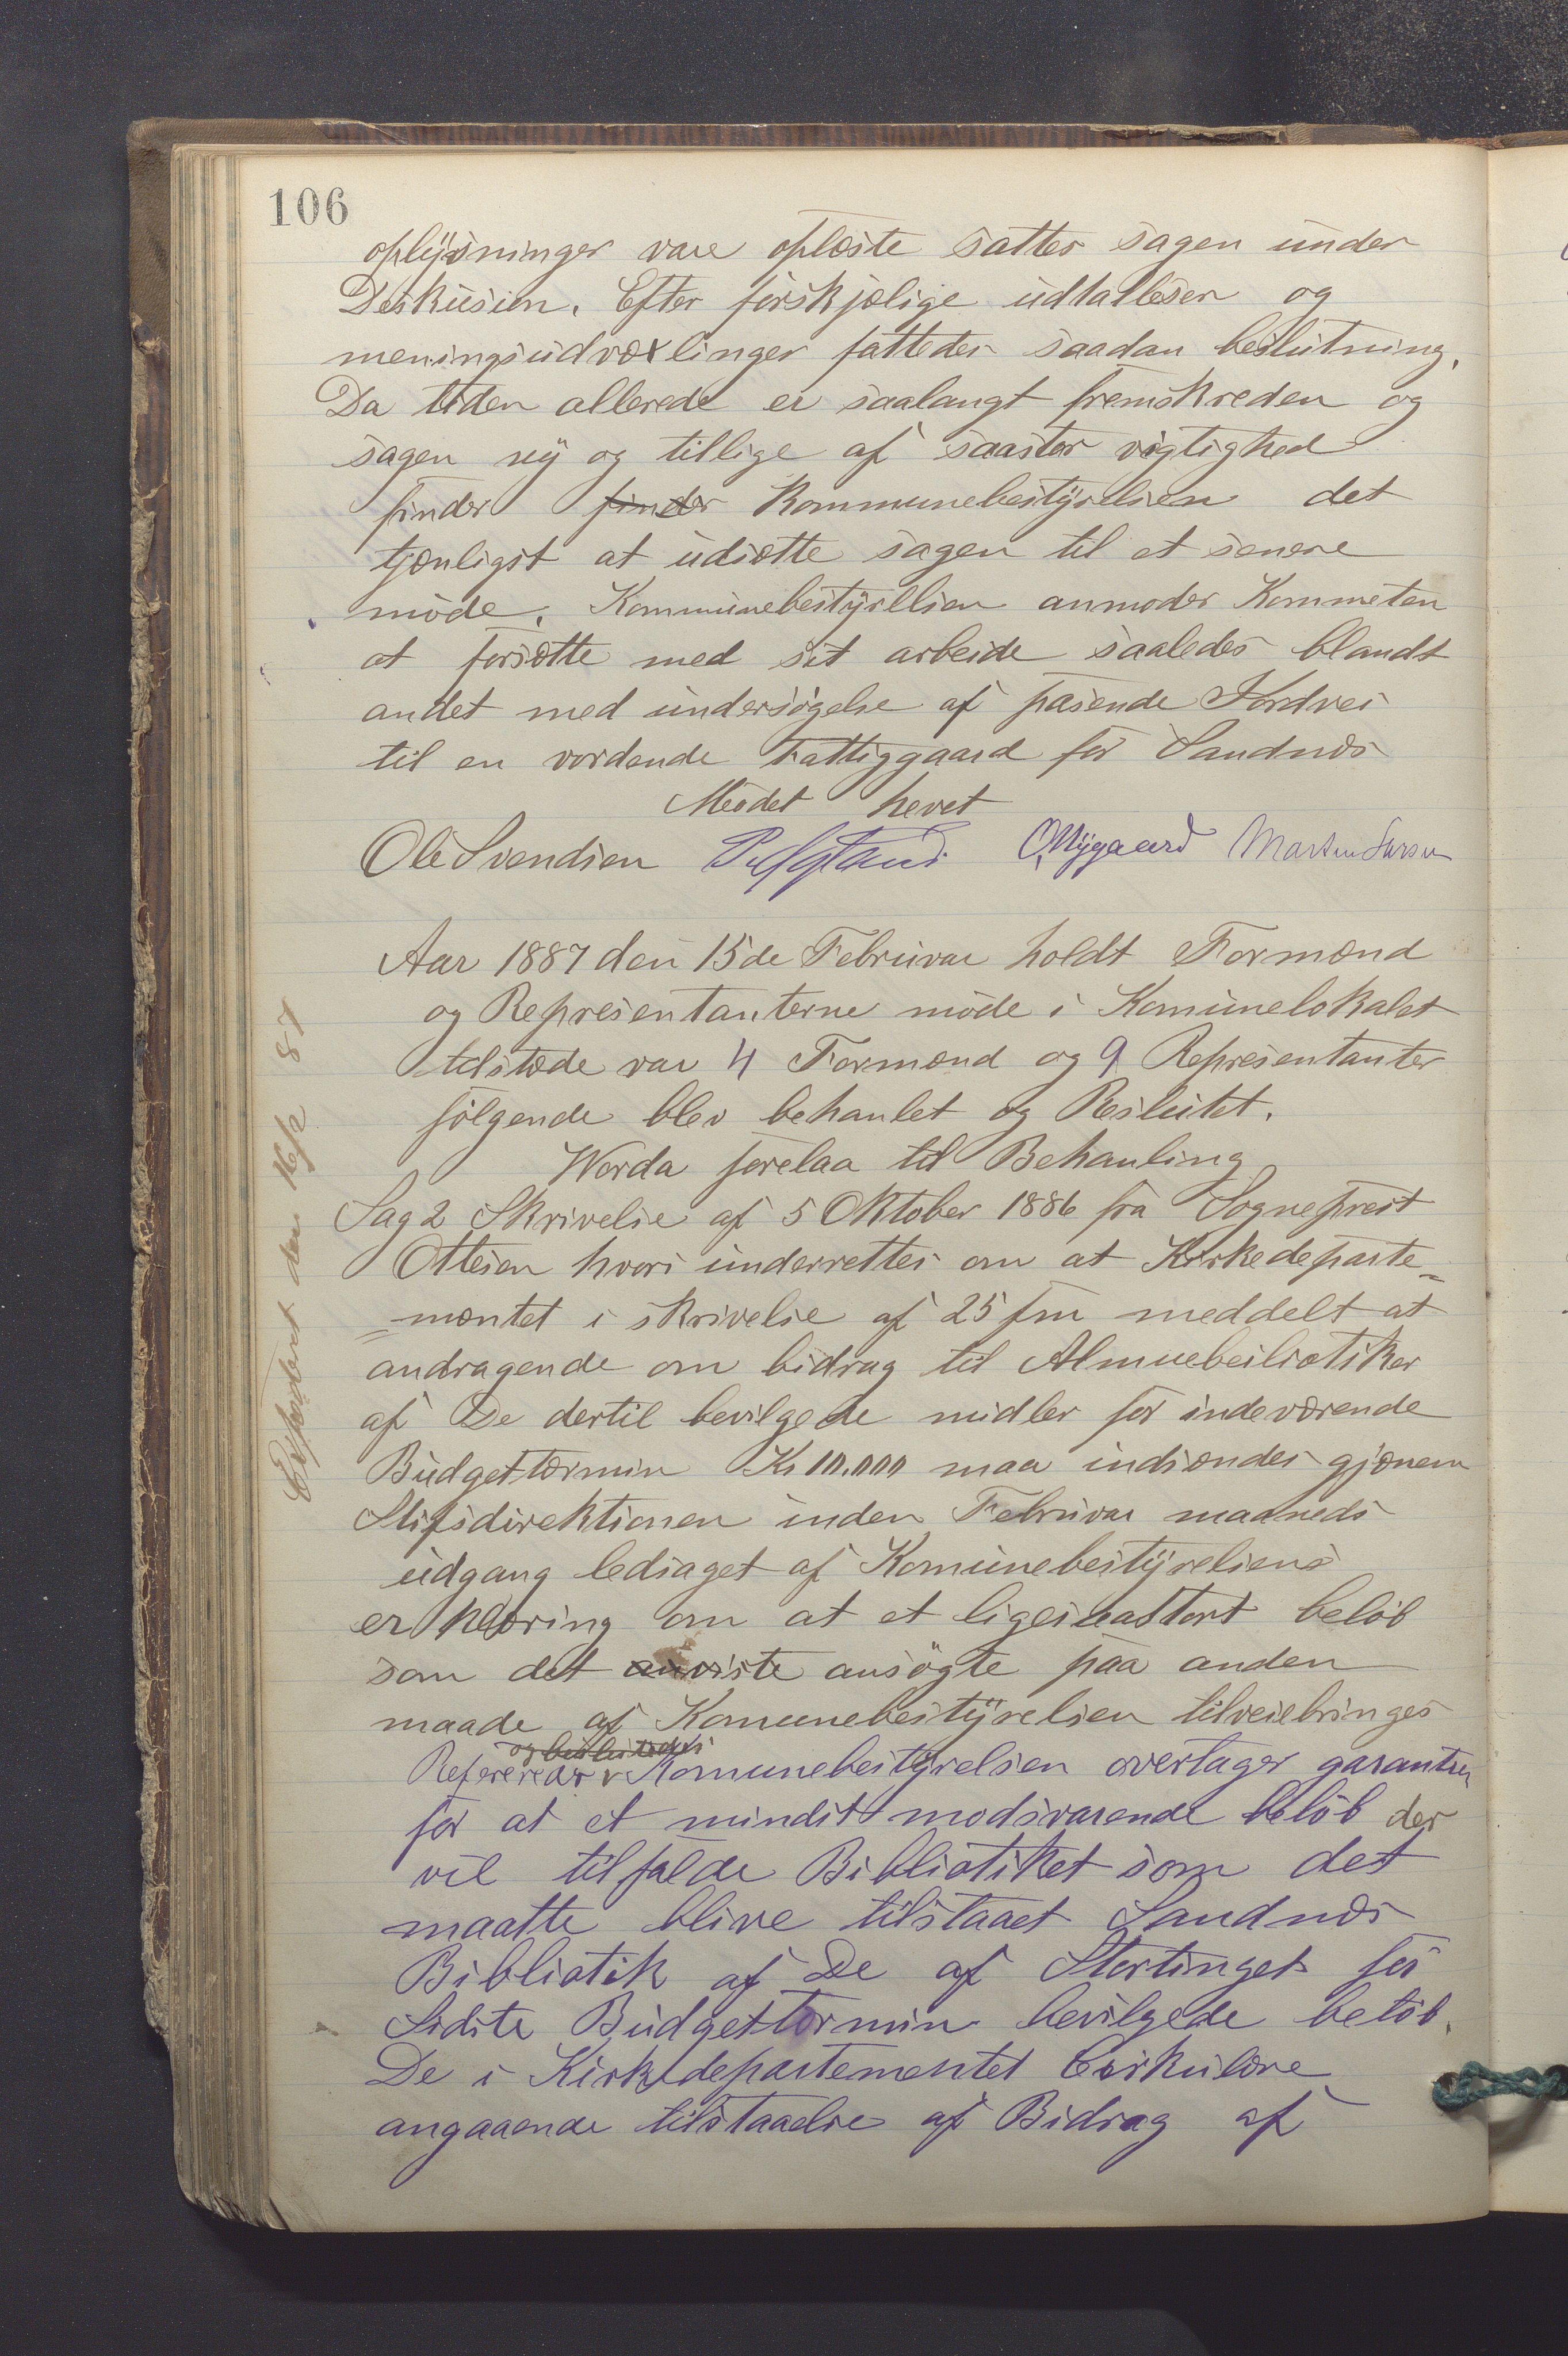 106
oplysninger vare oplæste sattes sagen under
Deskusion. Efter forskjælige udtalleser og
meningsudvæxlinger fattedes saadan beslutning.
Da tiden allerede er saalangt fremskreden og
sagen ny og tillige af saastor vigtighed
finder finder Kommunebestyrelsen det
tjænligst at udsætte sagen til et senere
møde. Kommunebestyrllsen anmoder Kommeten
at forsætte med sit arbeide saaledes blandt
andet med undersøgelse af pasende Jordvei
til en vordende Fattiggaard for Sandnæs
Mødet hevet
Ole Svendsen O. Nygaard
Aar 1887 den 15de Februar holdt Formænd
og Representanterne møde i Komunelokalet
tilstæde var 4 Formænd og 9 Representanter
følgende blev behanlet og Reslutet.
Worda forelaa til Behanling
Sag 2 Skrivelse af 5 Oktober 1886 fra Sogneprest
Ottesen hvori underrettes om at Kirkedeparte=
=mentet i skrivelse af 25 fm meddelt at
andragende om bidrag til Almuebeiliotiker
af De dertil bevilgede midler for indeværende
Budgettærmin Kr 10.000 maa indsendes gjænem
Stifsdirektionen inden Februar maaneds
udgang ledsaget af Komunebestyrelsens
erklæring om at et ligesaastort beløb
som det anviste ansøgte paa anden
maade af Komunebestyrelsen tilveiebringes
og besluttedes
Refereredes v Komunebestyrelsen overtager garantien
for at et mindst modsvarende beløb der
vil tilfalde Bibliotiket som det
maatte blive tilstaaet Sandnæs
Bibliotik af De af Stortinget for
Sidste Budgettærmin bevilgede beløb.
De i Kirkedepartementet Cirkulære
angaaende tilstaaelse af Bidrag af
Expedert den 16/2 87